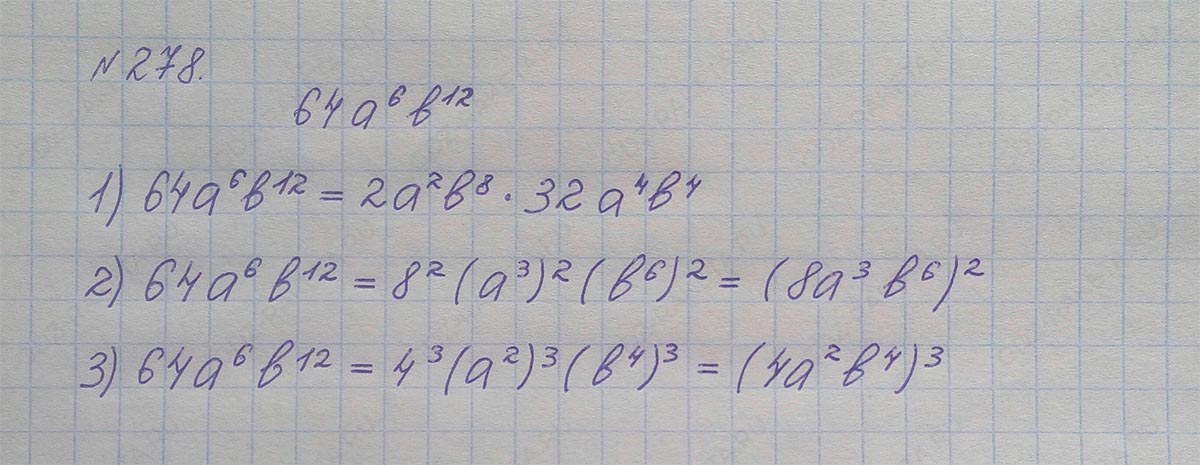 №278.
64a⁶b¹²
1) 64a⁶b¹² = 2a²b⁸ · 32a⁴b⁴
2) 64a⁶b¹² = 8²(a³)²(b⁶)² = (8a³b⁶)²
3) 64a⁶b¹² = 4³(a²)³(b⁴)³ = (4a²b⁴)³